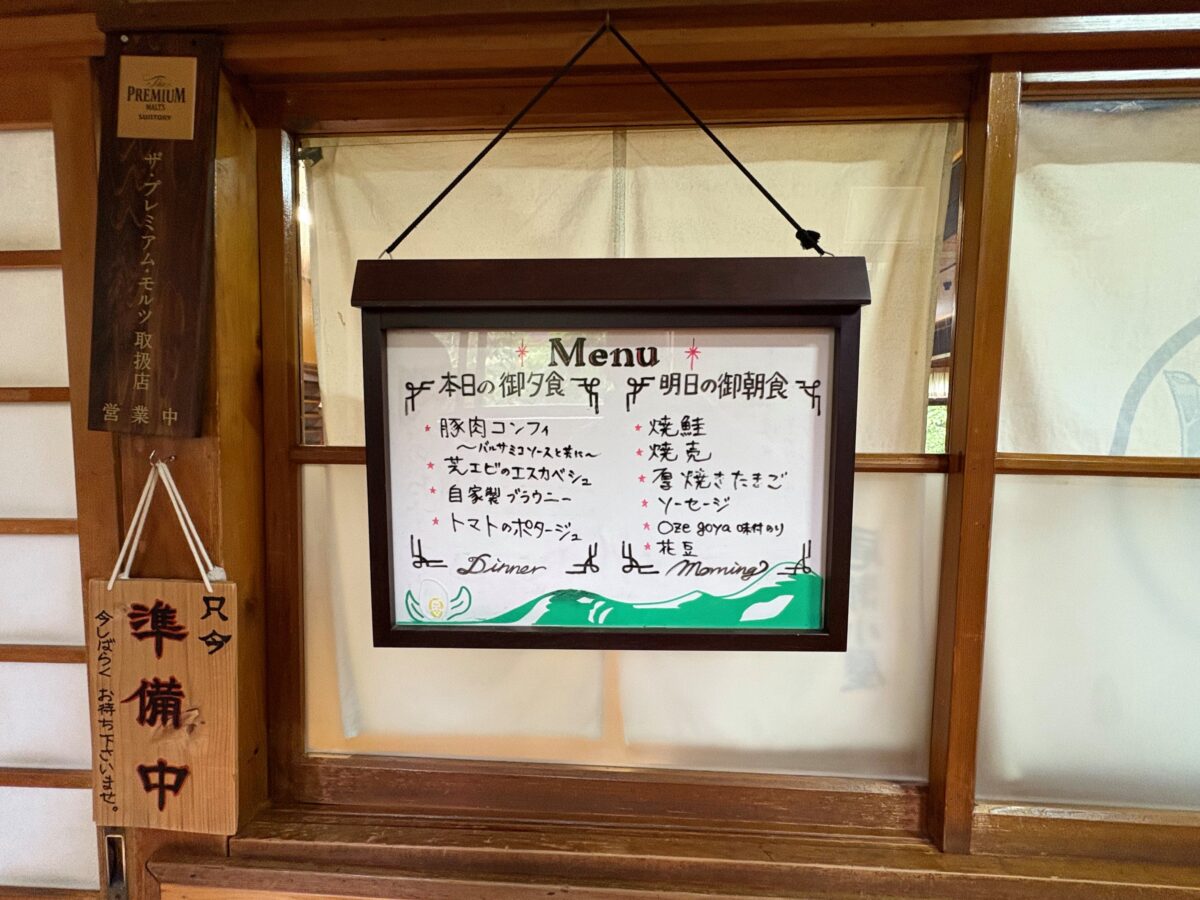 The
PREMIUM
MALT'S
SUNTORY
ザ・プレミアム・モルツ取扱店
営業中
只今
準備中
今しばらく お待ち下さいませ。
Menu
本日の御夕食
豚肉コンフィ
～バルサミコソースと共に～
芝エビのエスカベシュ
自家製ブラウニー
トマトのポタージュ
Dinner
明日の御朝食
焼鮭
焼売
厚焼きたまご
ソーセージ
Oze goya 味付のり
花豆
Morning